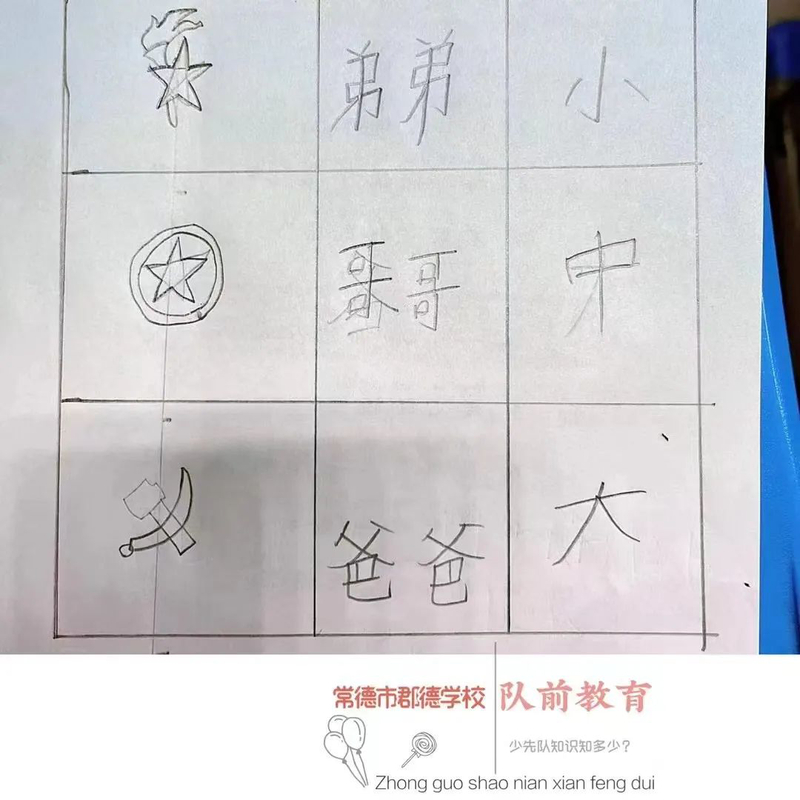 弟弟 小
哥哥 中
爸爸 大
常德市郡德学校 队前教育
少先队知识知多少?
Zhong guo shao nian xian feng dui